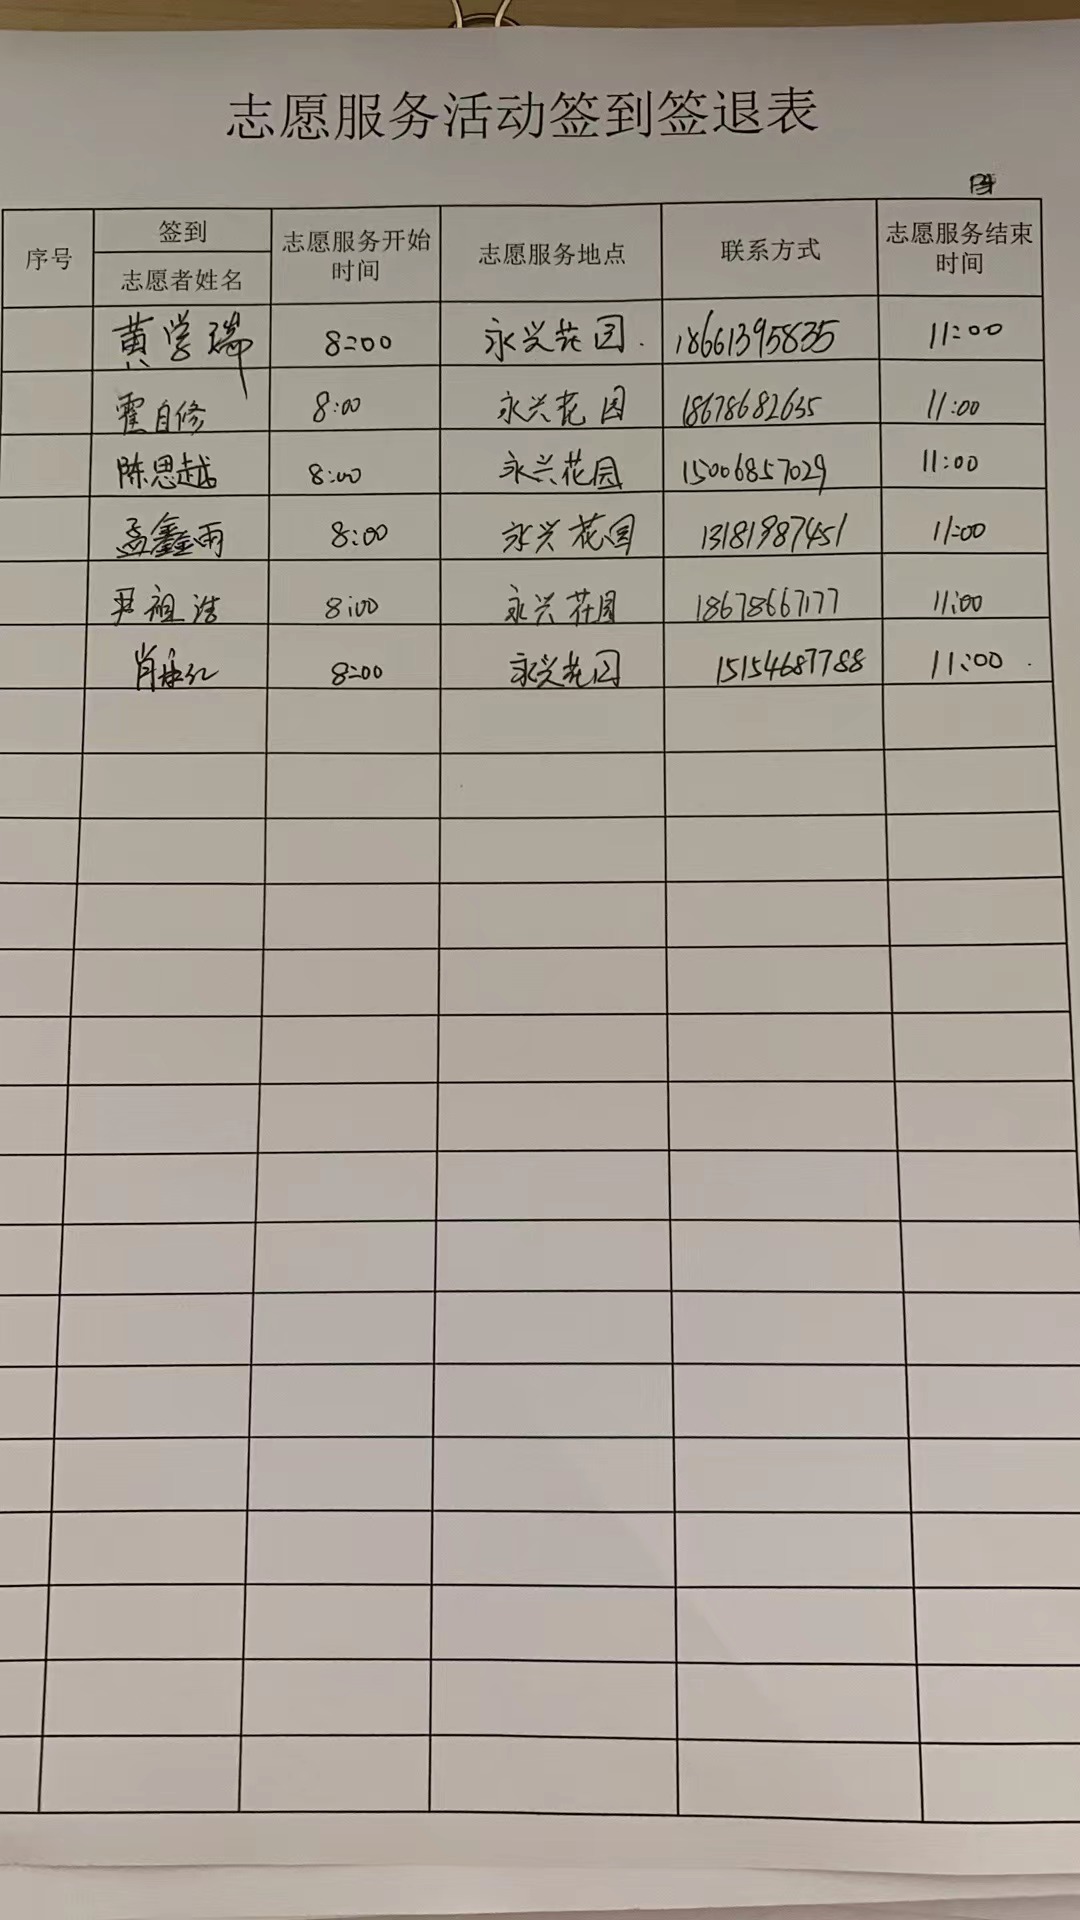 志愿服务活动签到签退表
序号 签到 志愿者姓名 志愿服务开始时间 志愿服务地点 联系方式 志愿服务结束时间
黄学瑞 8:00 永兴花园. 18661395835 11:00
霍自修 8:00 永兴花园 18678682635 11:00
陈思越 8:00 永兴花园 15006857029 11:00
孟鑫雨 8:00 永兴花园 13181987451 11:00
尹祖浩 8:00 永兴花园 18678667177 11:00
肖 8:00 永兴花园 15154687788 11:00.